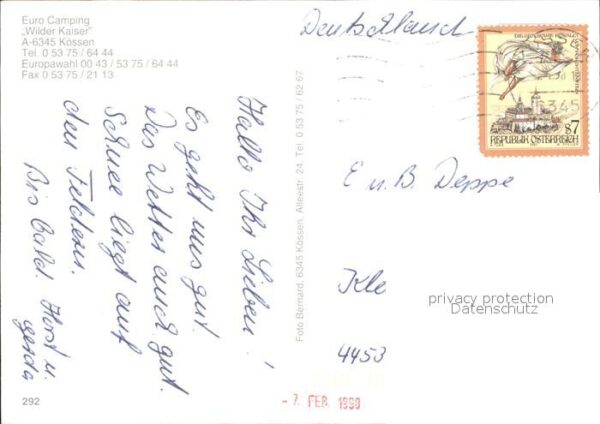 Euro Camping
„Wilder Kaiser"
A-6345 Kössen
Tel. 0 53 75 / 64 44
Europawahl 00 43 / 53 75 / 64 44
Fax 0 53 75 / 21 13
Hallo Ihr Lieben!
Es geht uns gut.
Das Wetter auch gut.
Schnee liegt auf
den Feldern.
Bis bald Horst u.
gerda
292
Foto Bernard, 6345 Kössen, Alleestr. 24, Tel. 0 53 75 / 62 67
REPUBLIK ÖSTERREICH
S7
6345
E u. B. Deppe
Kle
privacy protection
Datenschutz
4453
- 7. FEB. 1998